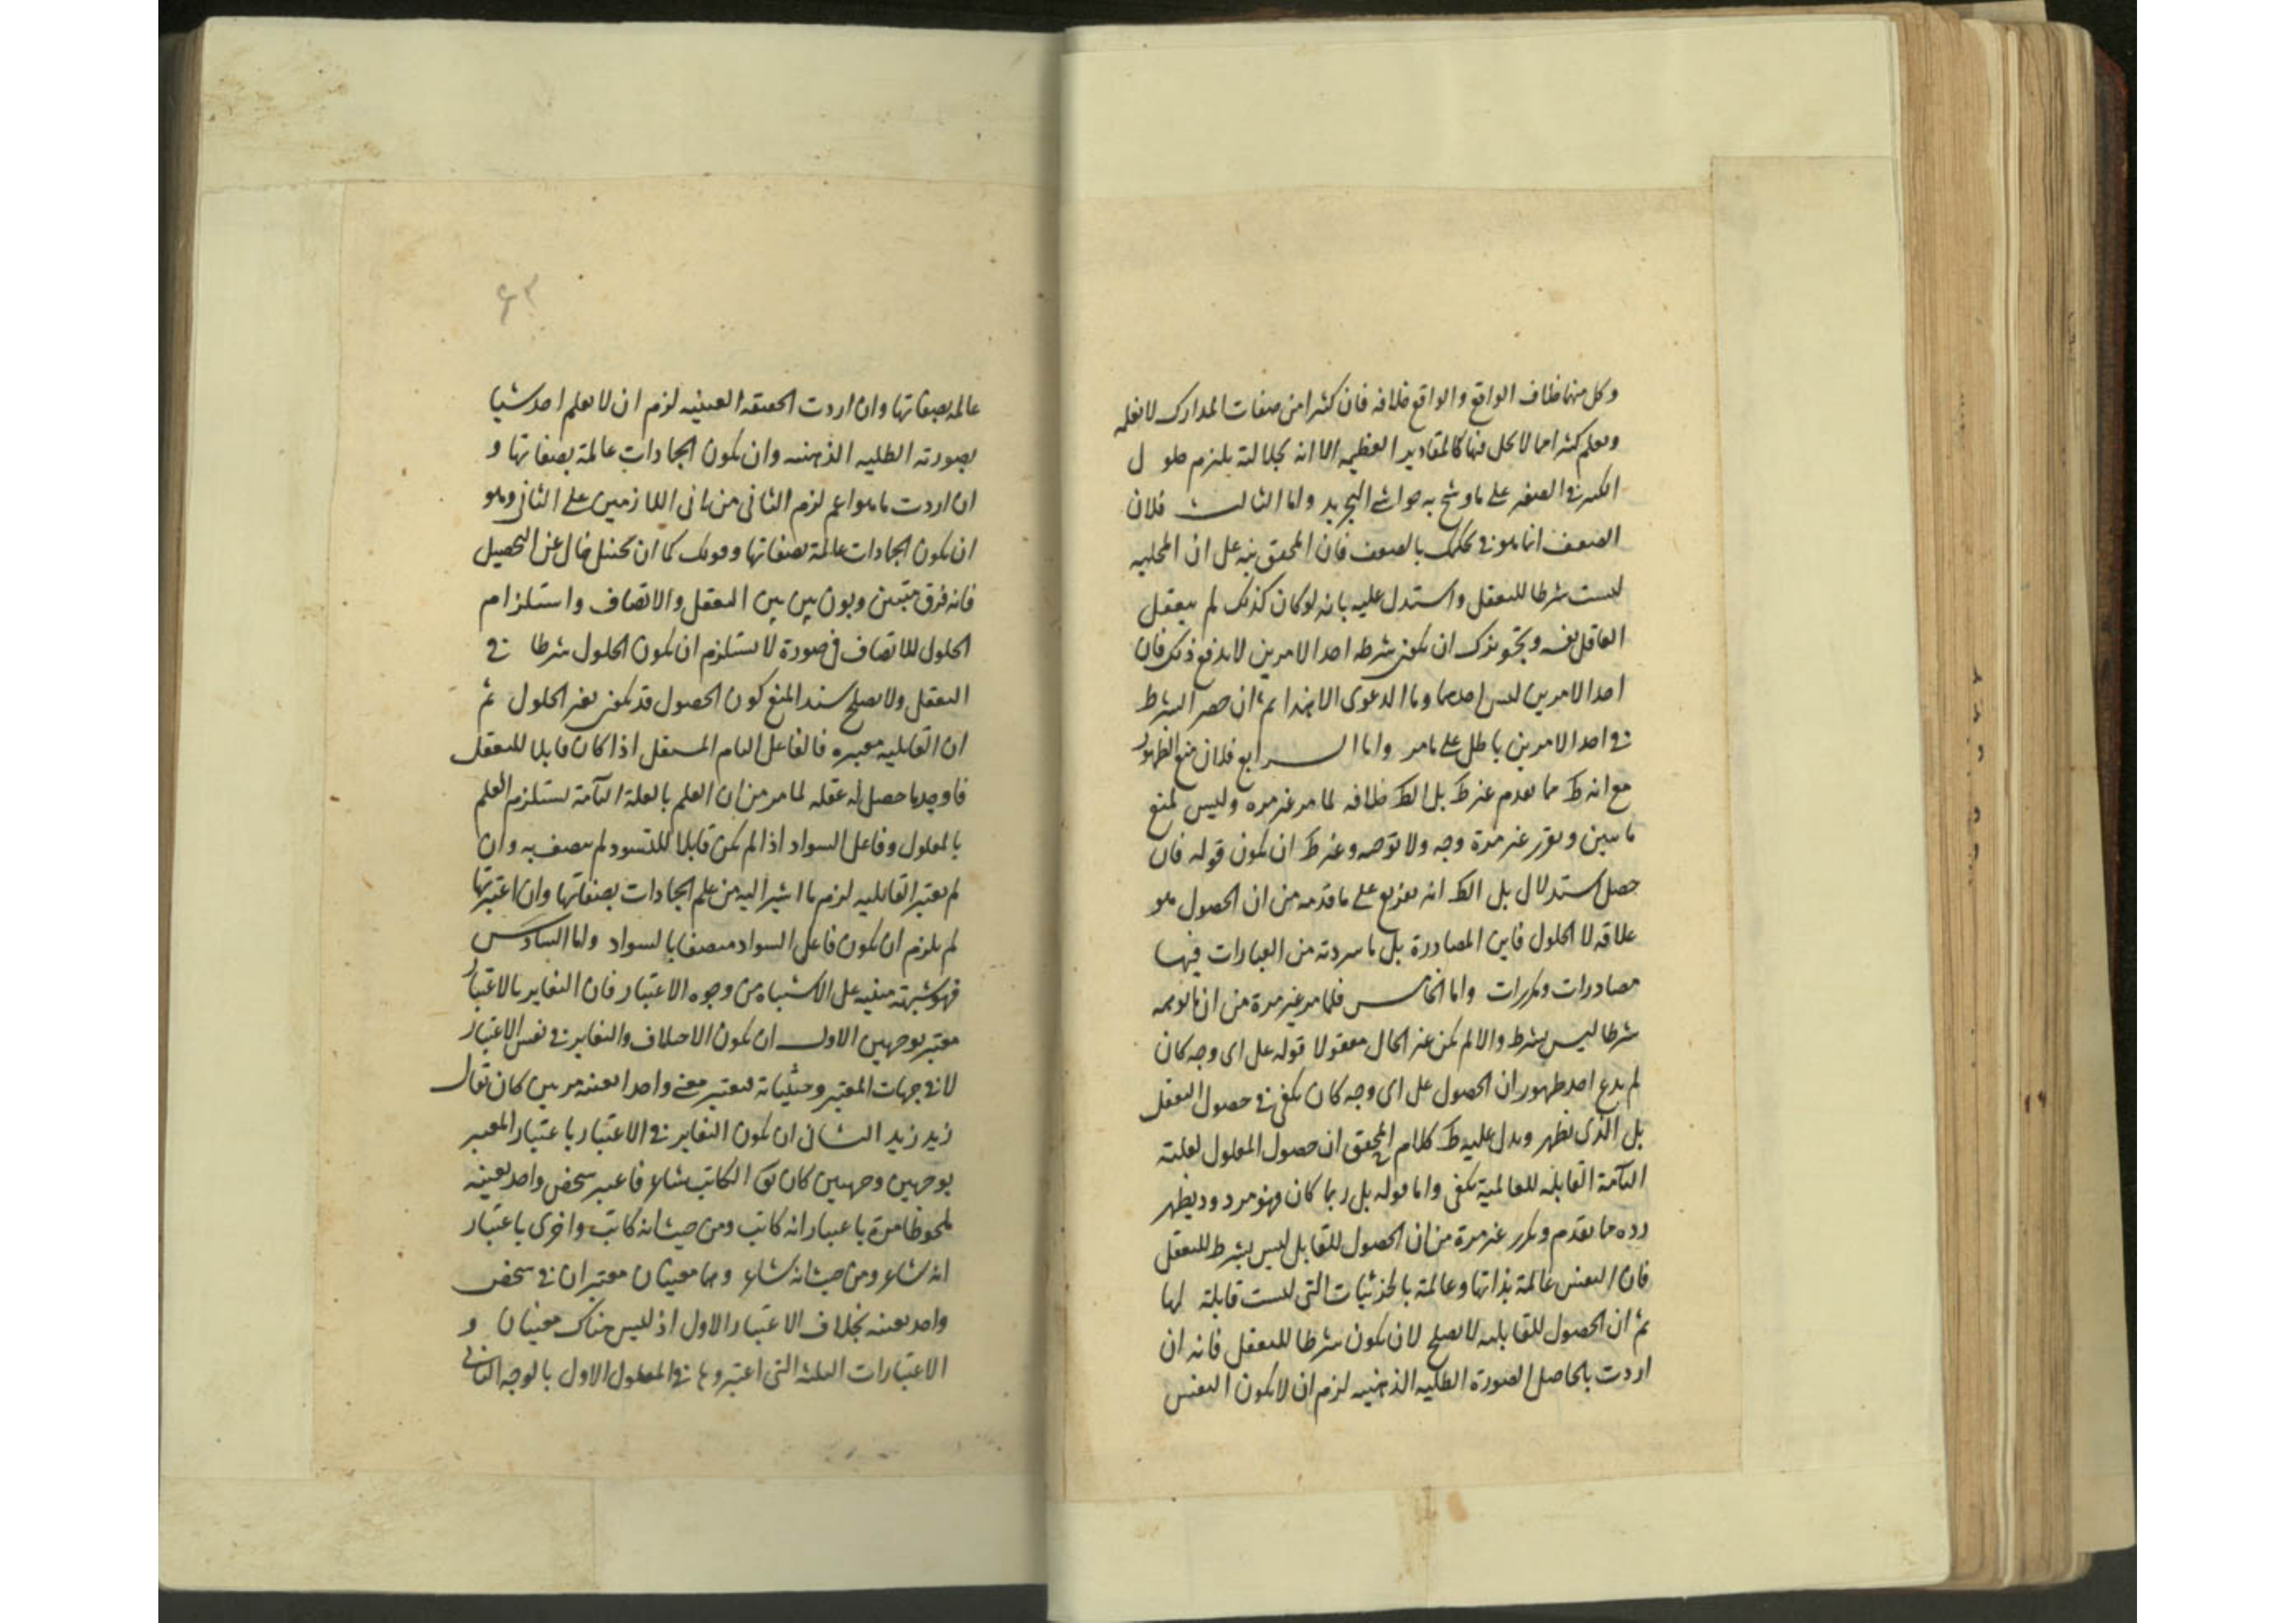 وكل منهما خلاف الواقع والواقع خلافه فان كثيرا من صفات المدارك لا نعلمه
ونعلم كثيرا مما لا يحل فيها كالمقادير العظيمه الا انه بجلالته يلتزم حلول
الكبير في الصغير على ما وشح به حواشي التجريد واما الثالث فلان
الضعف انما هو في حكمك بالضعف فان المحقق بنه على ان المحلية
ليست شرطا للتعقل واستدل عليه بانه لو كان كذلك لم يتعقل
العاقل نفسه وتجويزك ان يكون شرطه احد الامرين لا يدفع ذلك فان
احد الامرين ليس احدهما وما الدعوى الا هذا ثم ان حصر الشرط
في احد الامرين باطل على ما مر واما الرابع فلان منع الظهور
مع انه ظ مما تقدم غير ظ بل الظ خلافه لما مر غير مرة وليس لمنع
ما تبين وتقرر غير مرة وجه ولا توجه وغير ظ ان يكون قوله فان
حصل استدلال بل الظ انه تفريع على ما قدمه من ان الحصول هو
علاقه لا الحلول فاين المصادرة بل ما سردته من العبارات فيها
مصادرات ومكررات واما الخامس فلما مر غير مرة من ان ما توهمه
شرطا ليس بشرط والا لم يكن غير الحال معقولا قوله على اى وجه كان
لم يدع احد ظهور ان الحصول على اى وجه كان يكفى في حصول التعقل
بل الذى يظهر ويدل عليه ظ كلام المحقق ان حصول المعلول لعلته
التآمة القابلة للعالمية يكفى واما قوله بل ربما كان فهو مردود يظهر
رده مما تقدم وتكرر غير مرة من ان الحصول للقابل ليس بشرط للتعقل
فان النفس عالمة بذاتها وعالمة بالجزئيات التى ليست قابلة لها
ثم ان الحصول للقابليه لا يصلح لان يكون شرطا للتعقل فانه ان
اردت بالحاصل الصورة الظليه الذهنيه لزم ان لا يكون النفس
۶۳
عالمه بصفاتها وان اردت الحقيقه العينيه لزم ان لا يعلم احد شيا
بصورته الظليه الذهنيه وان يكون الجمادات عالمة بصفاتها و
ان اردت ما هو اعم لزم الثانى من ثانى اللازمين على الثانى وهو
ان يكون الجمادات عالمة بصفاتها وقولك كما ان تخيل خال عن التحصيل
فانه فرق متبين وبون بين بين التعقل والاتصاف واستلزام
الحلول للاتصاف في صورة لا يستلزم ان يكون الحلول شرطا في
التعقل ولا يصلح سند المنع كون الحصول قد يكون بغير الحلول ثم
ان القابليه معتبره فالفاعل التام المستقل اذا كان قابلا للتعقل
فاوجد ما حصل له عقله لما مر من ان العلم بالعلة التآمة يستلزم العلم
بالمعلول وفاعل السواد اذا لم يكن قابلا للتسود لم يتصف به وان
لم يعتبر القابليه لزم ما اشير اليه من علم الجمادات بصفاتها وان اعتبرتها
لم يلزم ان يكون فاعل السواد متصفا بالسواد واما السادس
فهو شبهة مبنيه على الاشتباه من وجوه الاعتبار فان التغاير بالاعتبار
معتبر بوجهين الاول ان يكون الاختلاف والتغاير في نفس الاعتبار
لا في جهات المعتبر وحيثياته فيعتبر معنى واحد بعينه مرتين كان تقال
زيد زيد الثانى ان يكون التغاير في الاعتبار باعتبار المعتبر
بوجهين وجهين كان يق الكاتب شاعر فاعتبر شخص واحد بعينه
ملحوظا مرة باعتبار انه كاتب ومن حيث انه كاتب واخرى باعتبار
انه شاعر ومن حيث انه شاعر وهما معنيان معتبران في شخص
واحد بعينه بخلاف الاعتبار الاول اذ ليس هناك معنيان و
الاعتبارات الثلثه التى اعتبروها في المعلول الاول بالوجه الثانى